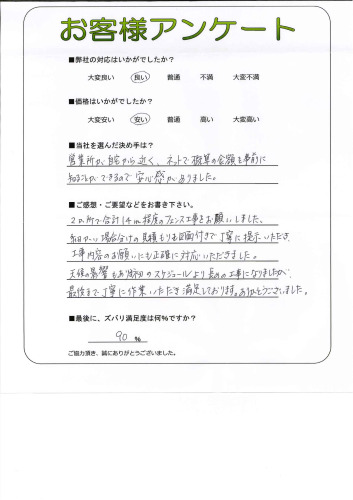 お客様アンケート
■弊社の対応はいかがでしたか？
大変良い 良い 普通 不満 大変不満
■価格はいかがでしたか？
大変安い 安い 普通 高い 大変高い
■当社を選んだ決め手は？
営業所が自宅から近く、ネットで概算の金額も事前に
知ることができるので安心感がありました。
■ご感想・ご要望などをお書き下さい。
2か所で合計14m程度のフェンス工事をお願いしました、
細かい場合分けの見積もりも図面付きで丁寧に提示いただき
工事内容のお願いにも正確に対応いただきました。
天候の影響もあり当初のスケジュールより長めの工事になりましたが、
最後まで丁寧に作業いただき満足しております。ありがとうございました。
■最後に、ズバリ満足度は何%ですか？
90 %
ご協力頂き、誠にありがとうございました。